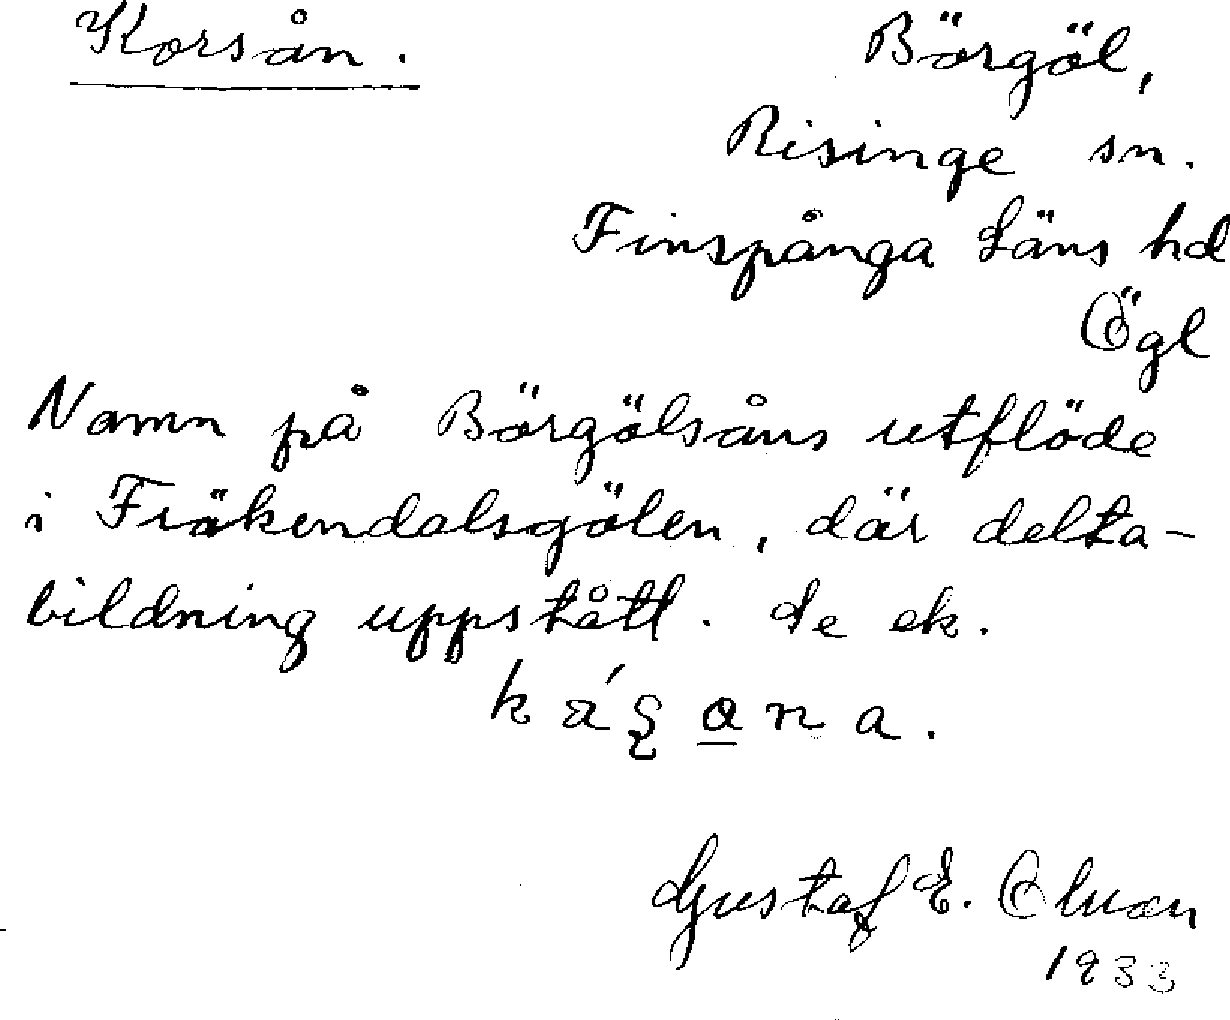 Korsån.
Börgöl,
Risinge sn.
Finspånga Läns hd
Ögl
Namn på Börgölsåns utflöde
i Fräkendalsgölen, där delta-
bildning uppstått. Se ek.
Gustaf E.
1933